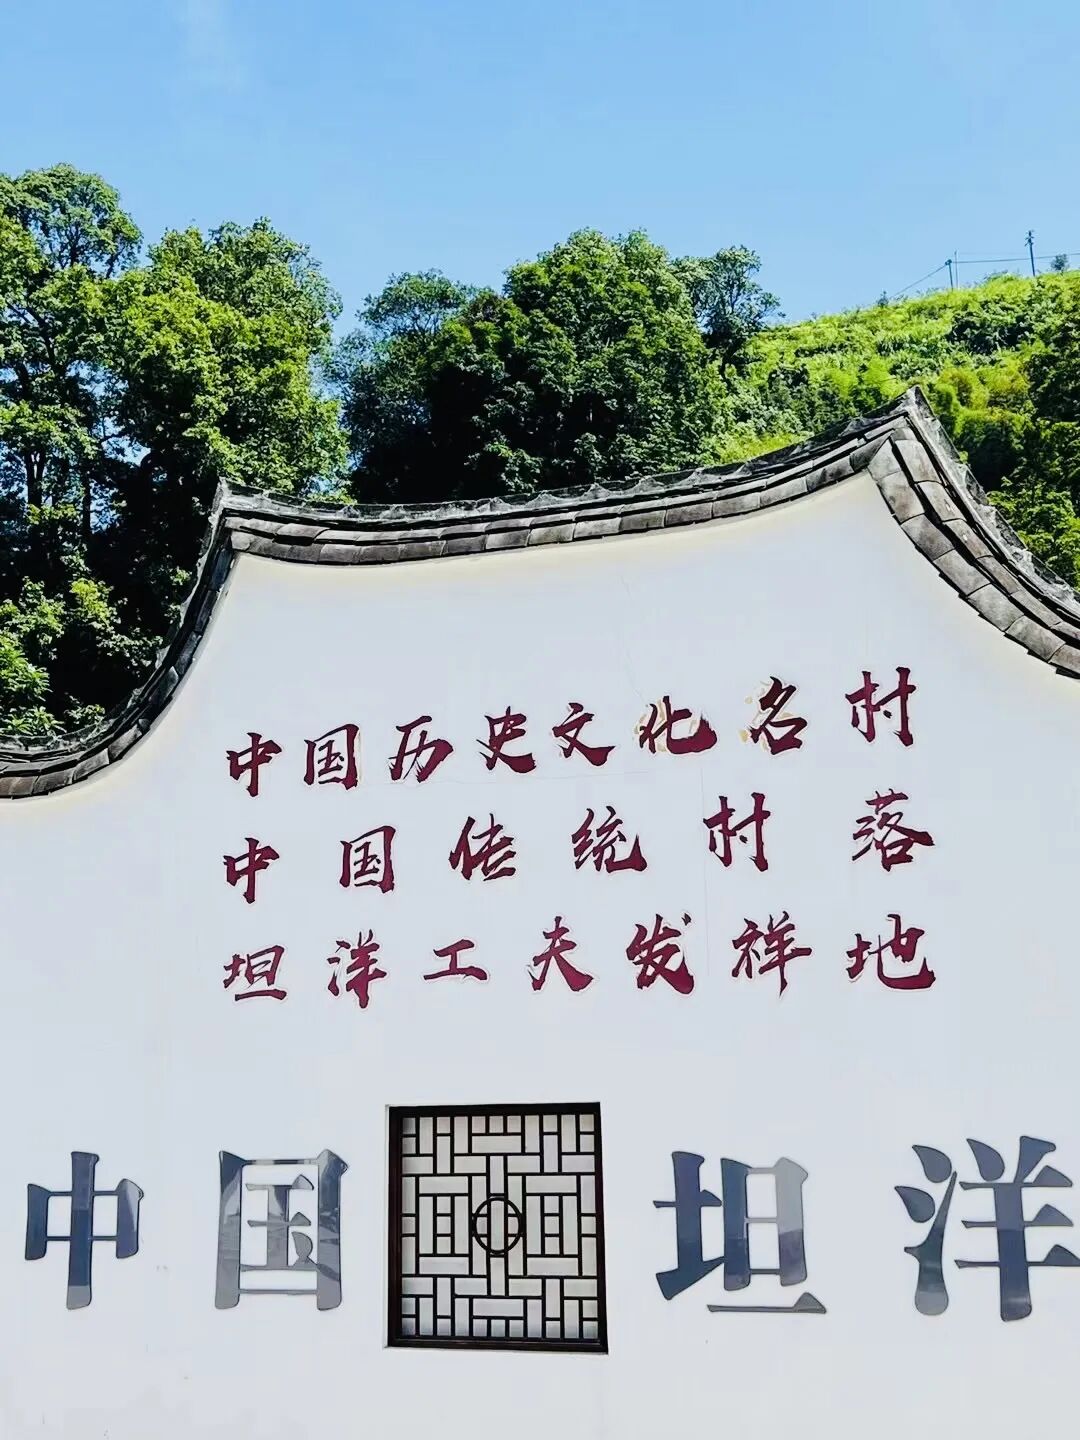 中国历史文化名村
中国传统村落
坦洋工夫发祥地
中国坦洋